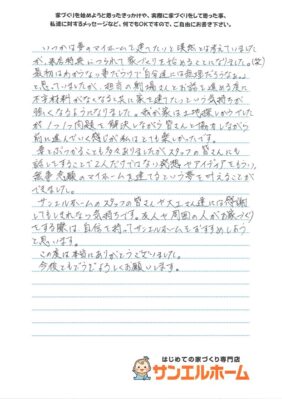 家づくりを始めようと思ったきっかけや、実際に家づくりをして思った事、
私達に対するメッセージなど、何でもOKですので、ご自由にお書き下さい。
いつかは夢のマイホームを建てたいと漠然とは考えていました
が、来店特典につられて家づくりを始めることになりました。(笑)
最初はわからない事だらけで「自分達には無理だろうなぁ。」
と思っていましたが、担当の
さんとお話を進める度に
不安材料がなくなると共に家を建てたいという気持ちが
強くなるようになりました。我が家は土地探しからでした
が、1つ1つ問題を解決しながら皆さんと協力しながら
前に進んでいく感じが私はとても楽しかったです。
妻とぶつかることも多々ありましたが、スタッフの皆さんにも
話してすることで2人だけではない発想やアイディアをもらい、
無事念願のマイホームを建てるという夢を叶えることが
できました。
サンエルホームのスタッフの皆さんや大工さん達には感謝
してもしきれない気持ちです。友人や周囲の人が家づくり
をする際は自信を持って「サンエルホーム」をおすすめしよう
と思います。
この度は本当にありがとうございました。
今後ともどうぞよろしくお願いします。
はじめての家づくり専門店
サンエルホーム